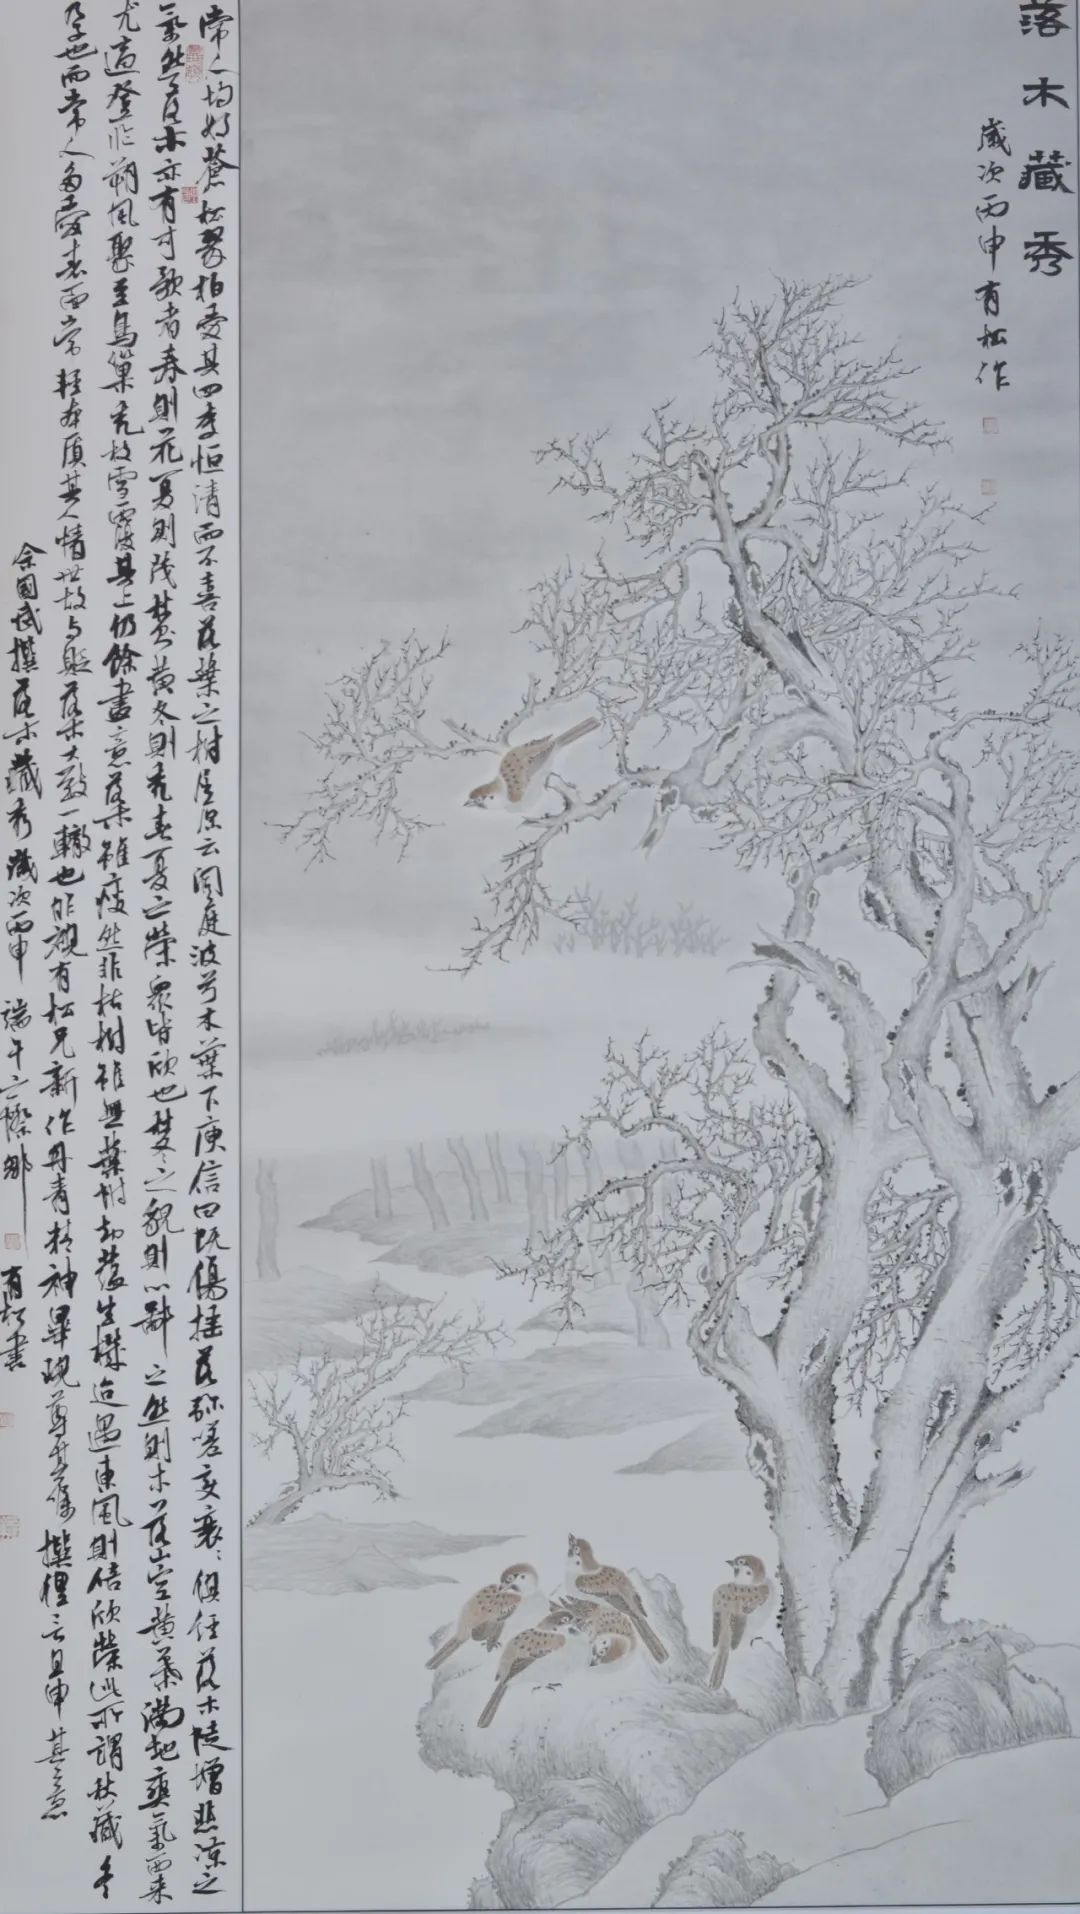 落木藏秀
歲次丙申有松作
常人均好蒼松翠柏愛其四季恒清而不喜落葉之樹屈原云洞庭波兮木葉下庾信曰既傷搖落弥嗟变衰落木陡增悲凉之
氣然落木亦有可歌者春則花夏則茂秋黄冬則秃春夏之榮眾皆欣也秋冬之貌則心鄙之然則木落山空黄葉滿地爽氣西来
尤適登臨朔風驟至鳥巢秃枝雪覆其上仍餘畫意落木雖瘦然非枯樹雖無葉附却蘊生機迨遇東風則倍欣榮此所謂秋藏冬
孕也而常人多愛表面常輕本質其人情世故与貶落木大致一轍也昨視有松兄新作丹青精神畢現撰俚言且申其意
余國撰落木藏秀歲次丙申端午之際
有松書